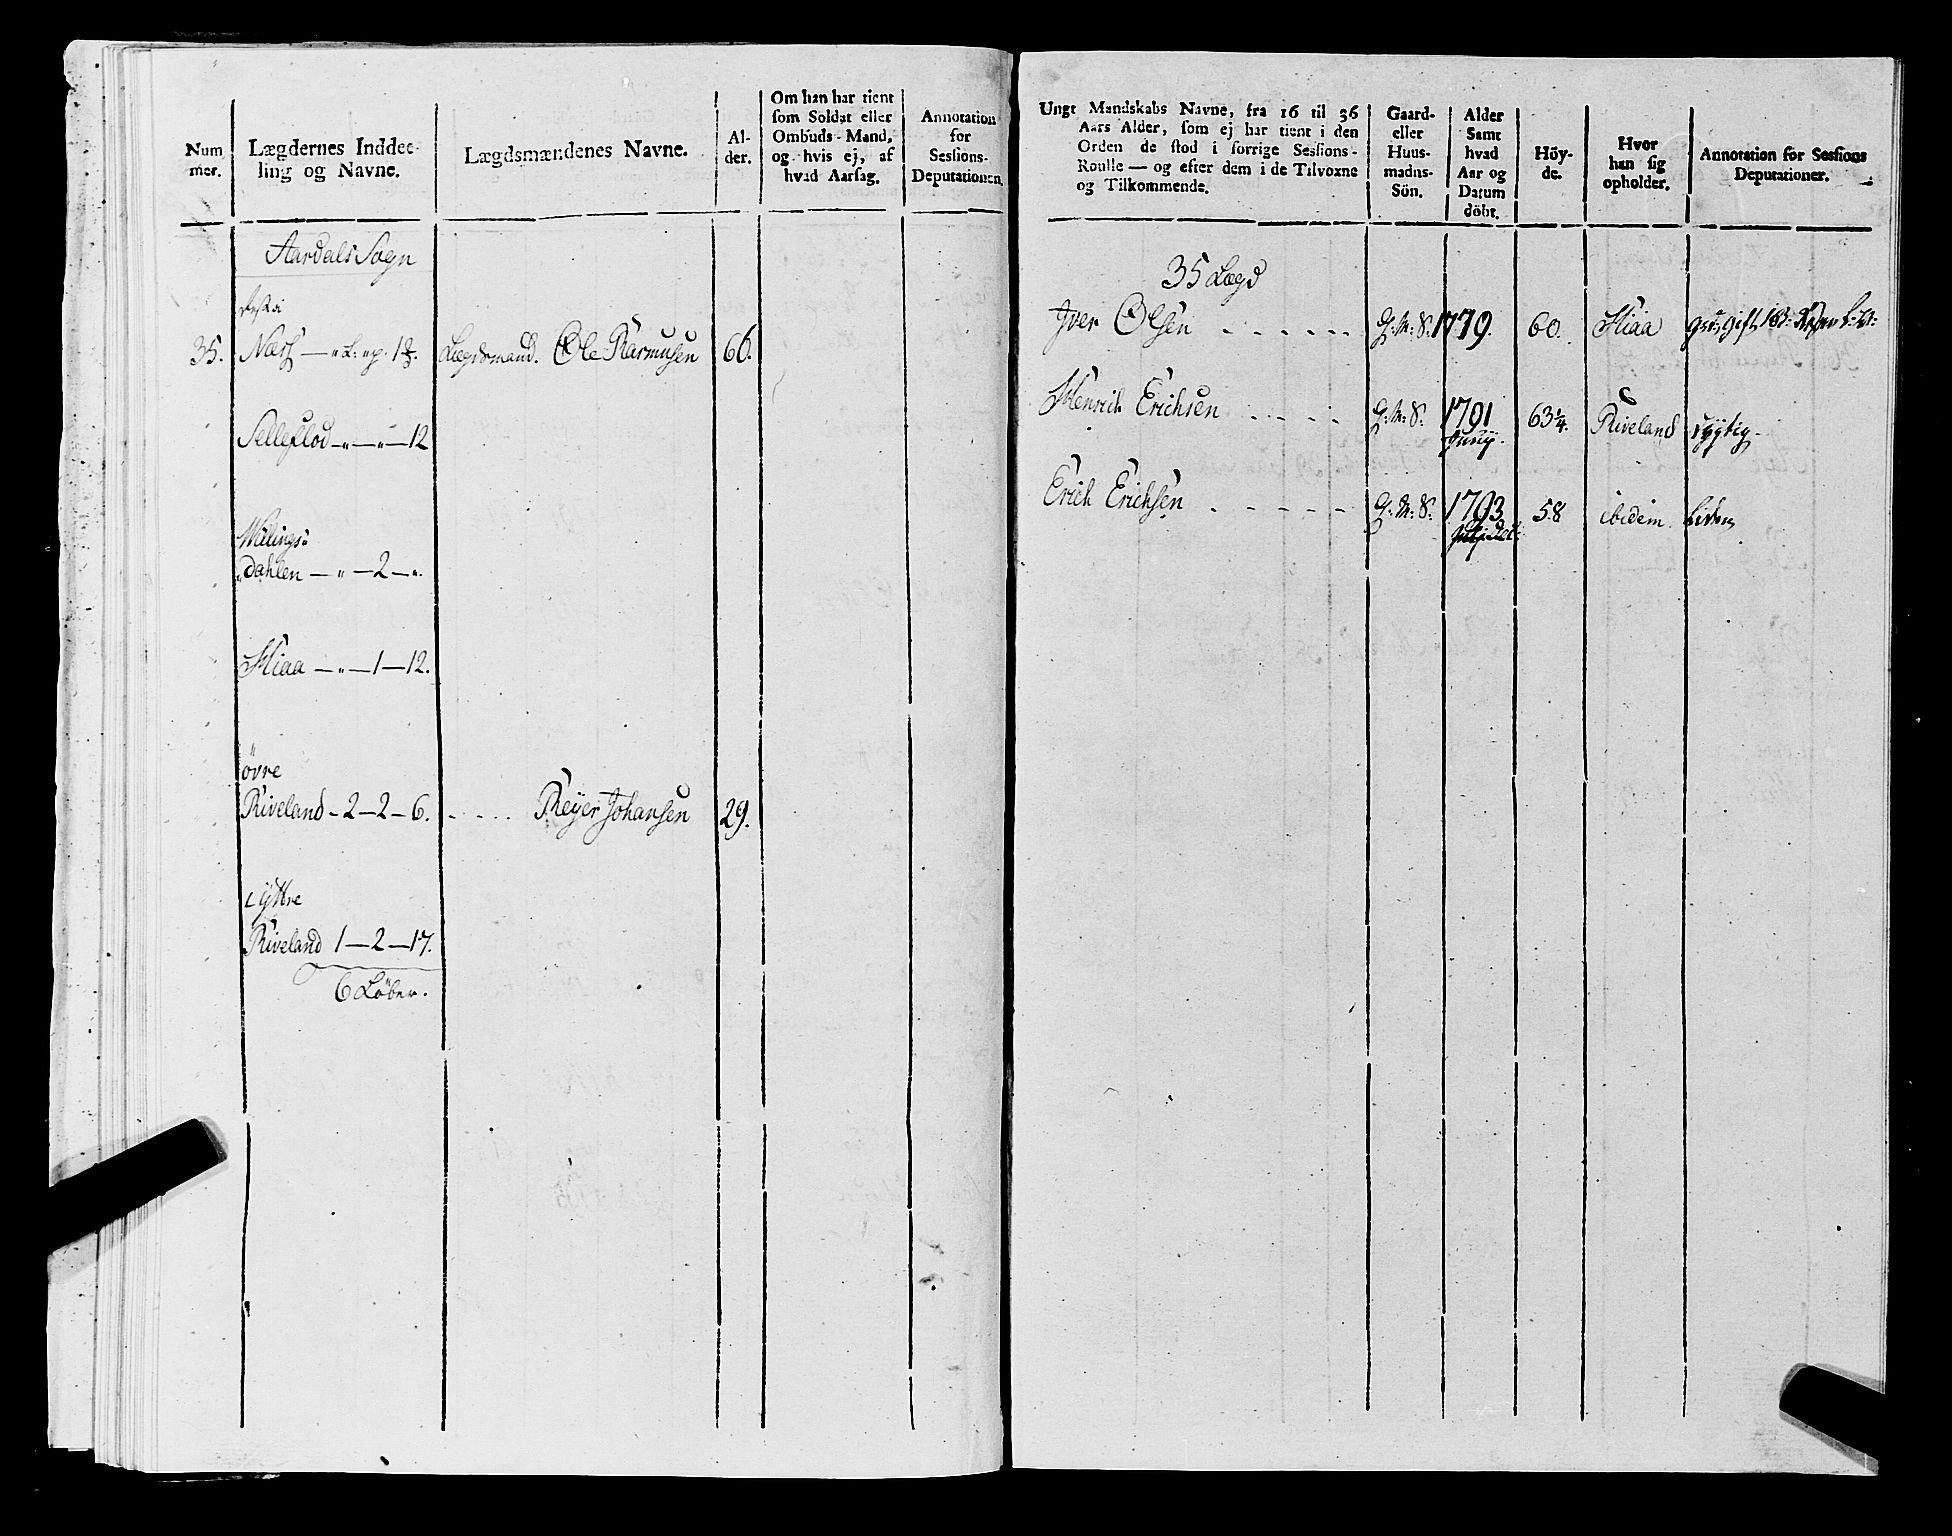 Num mer.
Lægdernes Inddee-
ling og Navne.
Lægdsmændenes Navne.
Al-
der.
Om han har tient
som Soldat eller
Ombuds-Mand,
og hvis ej, af
hvad Aarsag.
Annotation
for
Sessions-
Deputationen.
Aardals Sogn
35. Næss
Lægdsmand. Ole Rasmusen 66.
Selleflod — 12
Wælings-
dahlen — 2 —
Hiaa — 1 — 12.
øvre
Riveland - 2 - 2 - 6. . . . . . Reyer Johansen 29.
yttre
Riveland 1 — 2 — 17.
6 Løber.
Ungt Mandskabs Navne, fra 16 til 36
Aars Alder, som ej har tient i den
Orden de stod i forrige Sessions-
Roulle — og efter dem i de Tilvoxne
og Tilkommende.
Gaard-
eller
Huus-
madns-
Sön.
Alder
Samt
hvad
Aar og
Datum
döbt.
Höy-
de.
Hvor
han sig
opholder.
Annotation for Sessions
Deputationer.
35 Lægd
Iver Olsen . . . . . . G: M: S. 1779. 60. Hiaa gift
Henrich Erichsen . . . . . G: M: S. 1791 63 1/4. Riveland dygtig
Juny.
Erich Erichsen . . . . . . G: M: S. 1793 58 ibidem liden